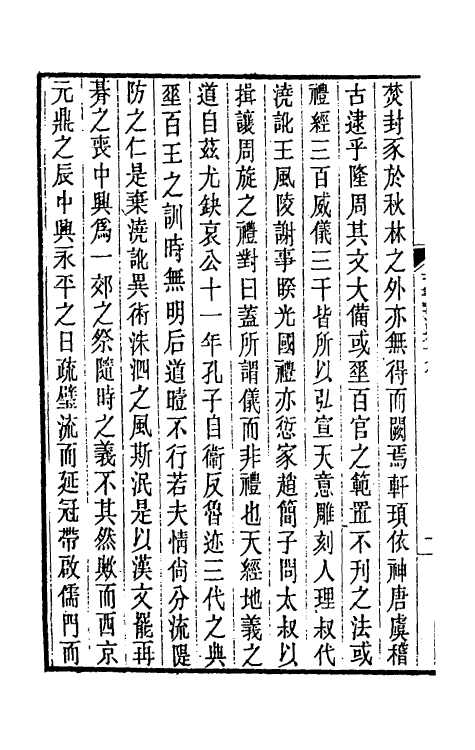 焚封豕於秋林之外亦無得而闕焉軒頊依神唐虞稽
古逮乎隆周其文大備或垂百官之範置不刊之法或
禮經三百威儀三千皆所以弘宣天意雕刻人理叔代
澆訛王風陵謝事睽光國禮亦愆家趙簡子問太叔以
揖讓周旋之禮對曰蓋所謂儀而非禮也天經地義之
道自茲尤缺哀公十一年孔子自衛反魯迹三代之典
垂百王之訓時無明后道曀不行若夫情尚分流隄
防之仁是棄澆訛異術洙泗之風斯泯是以漢文罷再
朞之喪中興爲一郊之祭隨時之義不其然歟而西京
元鼎之辰中興永平之日疏璧流而延冠帶啟儒門而